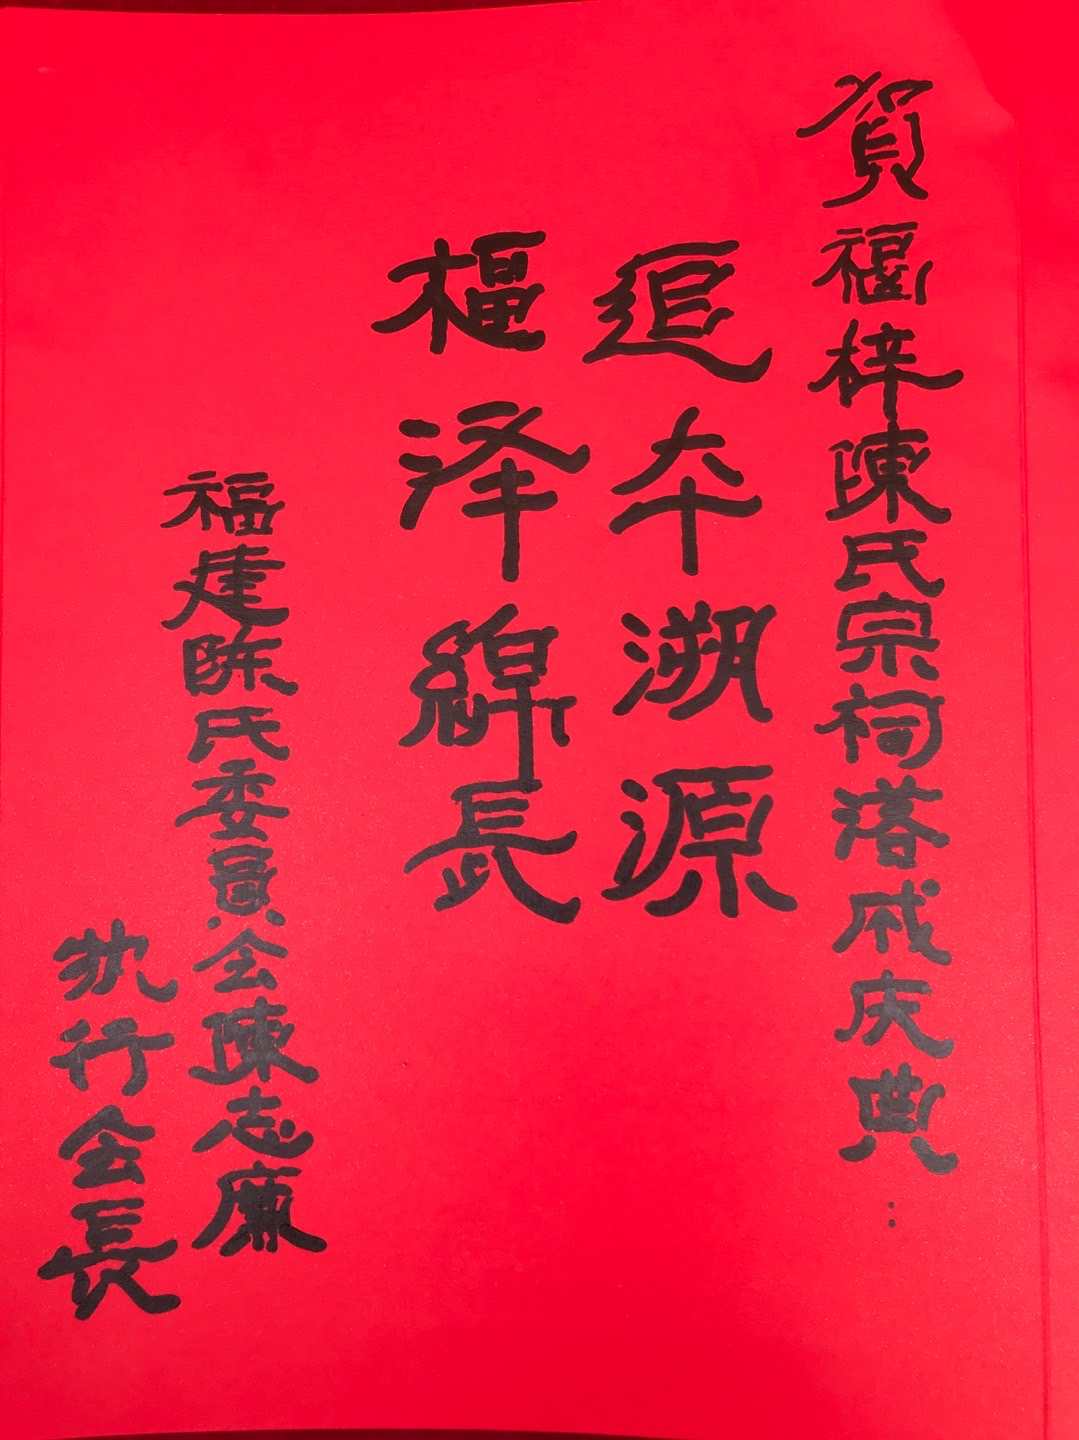 賀福梓陳氏宗祠落成庆典：
追本溯源
福泽綿長
福建陈氏委員会陳志廉
执行会長